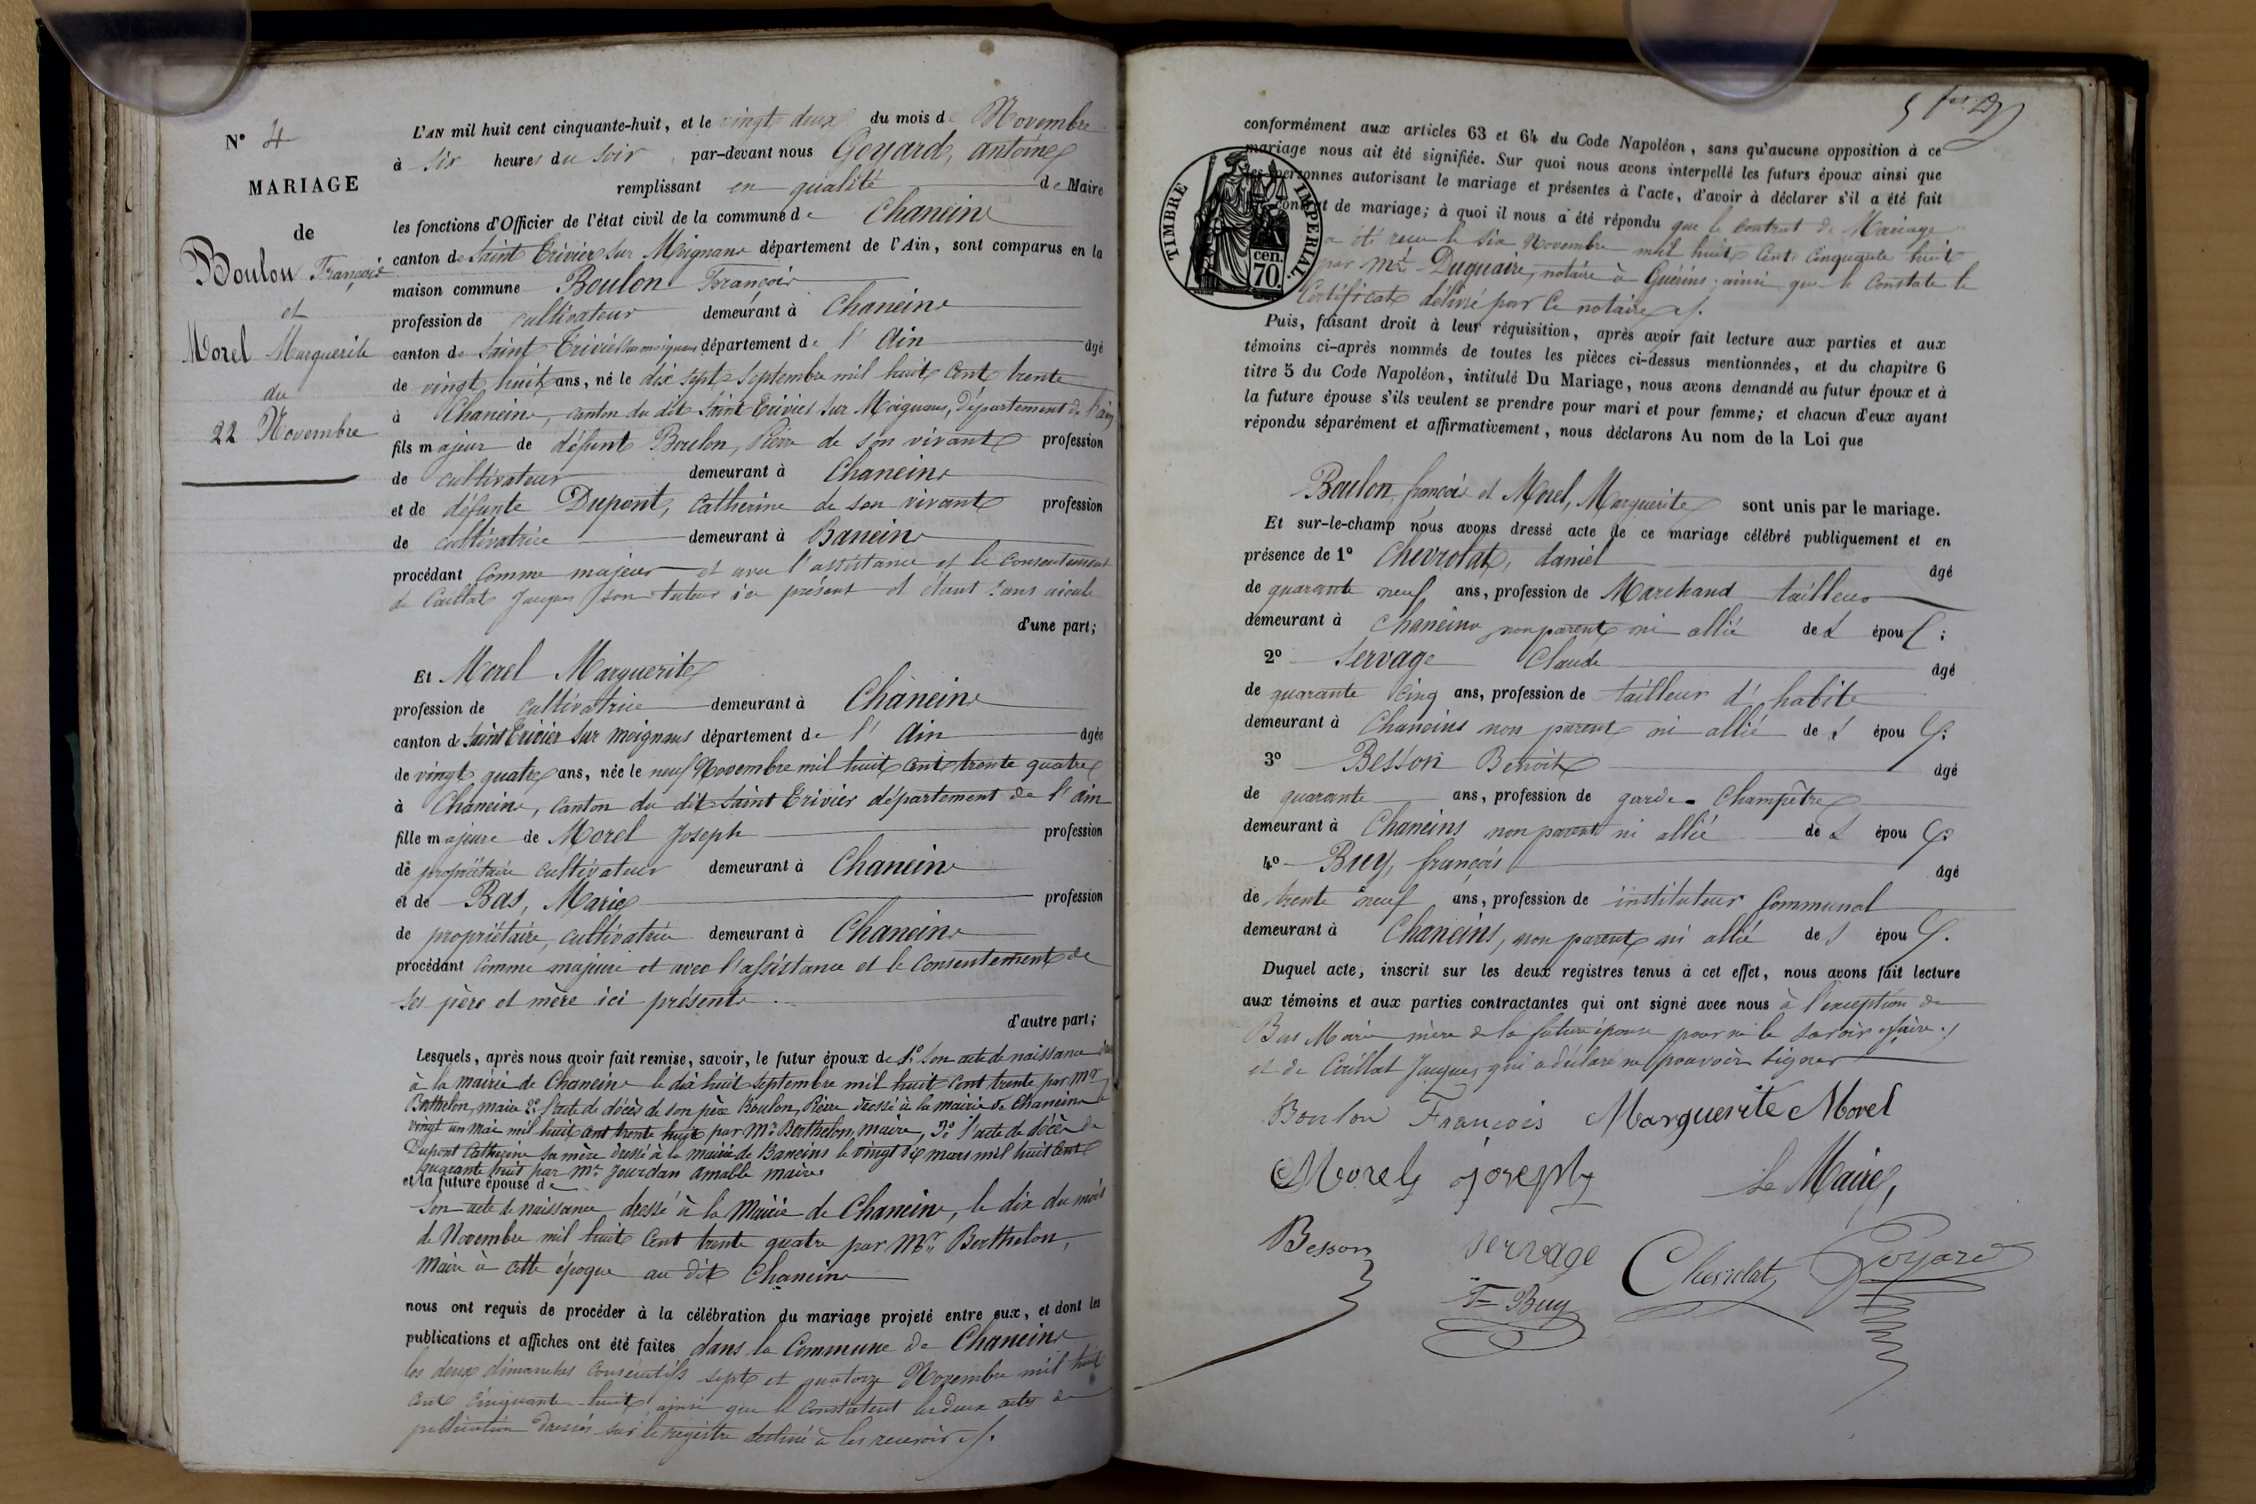 N° 4
MARIAGE
de
Boulon François
et
Morel Marguerite
du
22 Novembre
L'AN mil huit cent cinquante-huit, et le vingt deux du mois de Novembre
à six heures du soir, par-devant nous Goyard, antoine
remplissant en qualité de Maire
les fonctions d'Officier de l'état civil de la commune de Chaneins
canton de Saint Trivier sur Moignans département de l'Ain, sont comparus en la
maison commune Boulon François
profession de cultivateur demeurant à Chaneins
canton de Saint Trivier sur moignans département de l'Ain âgé
de vingt huit ans, né le dix sept septembre mil huit cent trente
à Chaneins, canton du dit Saint Trivier sur Moignans, Département de l'ain
fils majeur de défunt Boulon, Pierre de son vivant profession
de cultivateur demeurant à Chaneins
et de défunte Dupont, Catherine de son vivant profession
de cultivatrice demeurant à Baneins
procédant comme majeur et avec l'assistance et le consentement
de Caillat Jacques son tuteur ici présent et étant sans aieule
d'une part;
Et Morel Marguerite
profession de cultivatrice demeurant à Chaneins
canton de Saint Trivier sur moignans département de l'Ain âgée
de vingt quatre ans, née le neuf Novembre mil huit cent trente quatre
à Chaneins, canton du dit Saint Trivier département de l'ain
fille majeure de Morel Joseph profession
de propriétaire cultivateur demeurant à Chaneins
et de Bas, Marie profession
de propriétaire, cultivatrice demeurant à Chaneins
procédant comme majeure et avec l'assistance et le consentement de
ses père et mère ici présents.
d'autre part;
Lesquels, après nous avoir fait remise, savoir, le futur époux de 1° son acte de naissance
à la mairie de Chaneins le dix huit septembre mil huit cent trente par Mr
Berthelon, maire 2° l'acte de décès de son père Boulon, Pierre dressé à la mairie de Chaneins le
vingt un mai mil huit cent trente huit par Mr Berthelon, maire, 3° l'acte de décès de
Dupont Catherine sa mère dressé à la mairie de Baneins le vingt six mars mil huit cent
quarante huit par Mr Jourdan Amable maire
et la future épouse de
son acte de naissance dressé à la Mairie de Chaneins, le dix du mois
de Novembre mil huit cent trente quatre par Mr Berthelon,
Maire à cette époque au dit Chaneins
nous ont requis de procéder à la célébration du mariage projeté entre eux, et dont les
publications et affiches ont été faites dans la Commune de Chaneins
les deux dimanches consécutifs sept et quatorze Novembre mil huit
cent cinquante huit ainsi que le constatent les deux actes de
publication dressés sur le registre destiné à les recevoir
conformément aux articles 63 et 64 du Code Napoléon, sans qu'aucune opposition à ce
mariage nous ait été signifiée. Sur quoi nous avons interpellé les futurs époux ainsi que
les personnes autorisant le mariage et présentes à l'acte, d'avoir à déclarer s'il a été fait
contrat de mariage; à quoi il nous a été répondu que le contrat de Mariage
a été reçu le six Novembre mil huit cent cinquante huit
par Mr Duquaire, notaire à Guérins; ainsi que le constate le
Certificat délivré par ce notaire
TIMBRE IMPERIAL.
cen.
70.
Puis, faisant droit à leur réquisition, après avoir fait lecture aux parties et aux
témoins ci-après nommés de toutes les pièces ci-dessus mentionnées, et du chapitre 6
titre 5 du Code Napoléon, intitulé Du Mariage, nous avons demandé au futur époux et à
la future épouse s'ils veulent se prendre pour mari et pour femme; et chacun d'eux ayant
répondu séparément et affirmativement, nous déclarons Au nom de la Loi que
Boulon, françois et Morel, Marguerite sont unis par le mariage.
Et sur-le-champ nous avons dressé acte de ce mariage célébré publiquement et en
présence de 1° Chevrolat, daniel âgé
de quarante neuf ans, profession de Marchand tailleur
demeurant à Chaneins non parent ni allié des épou ;
2° Servage Claude âgé
de quarante cinq ans, profession de tailleur d'habits
demeurant à Chaneins non parent ni allié des épou
3° Besson Benoît âgé
de quarante ans, profession de garde-Champêtre
demeurant à Chaneins non parent ni allié des épou
4° Buy, françois âgé
de trente neuf ans, profession de instituteur Communal
demeurant à Chaneins, non parent ni allié des épou
Duquel acte, inscrit sur les deux registres tenus à cet effet, nous avons fait lecture
aux témoins et aux parties contractantes qui ont signé avec nous à l'exception de
Bas Marie mère de la future épouse pour ne le savoir faire
et de Caillat Jacques qui a déclaré ne pouvoir signer
Boulon François Marguerite Morel
Morel joseph Le Maire,
Besson servage Chevrolat Goyard
F= Buy